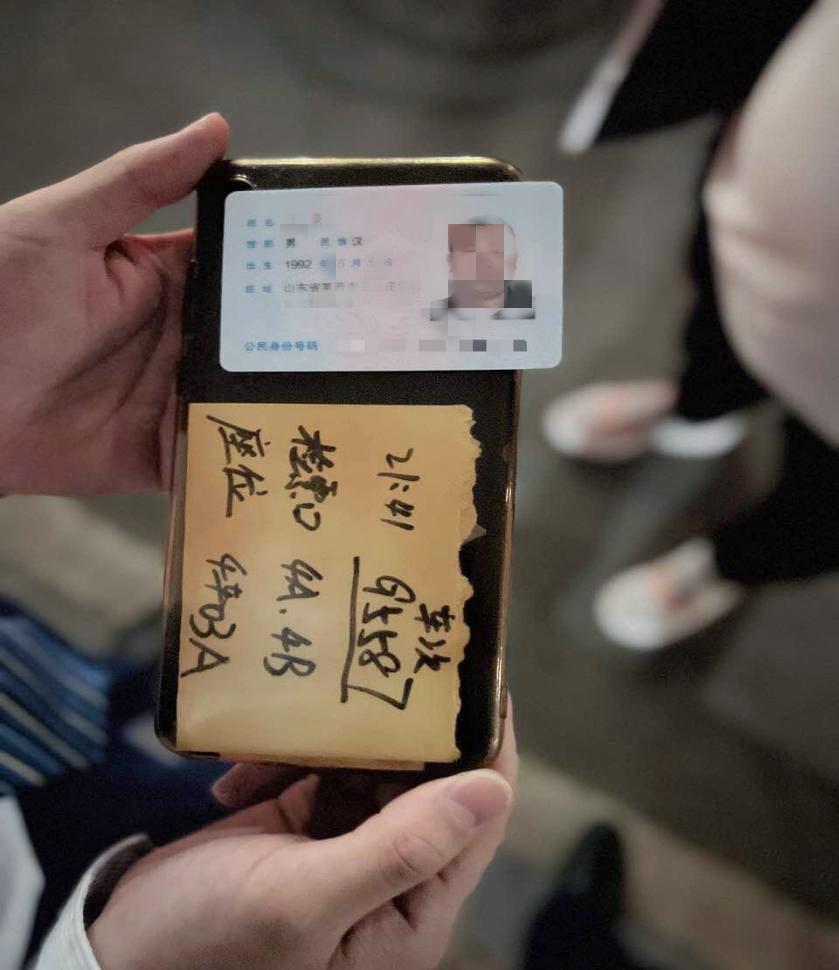 姓名
性别 男 民族 汉
出生 1992 年 月 日
住址 山东省莱西市
公民身份号码
车次
21:41 G5587
检票口 4A.4B
座位 4车03A